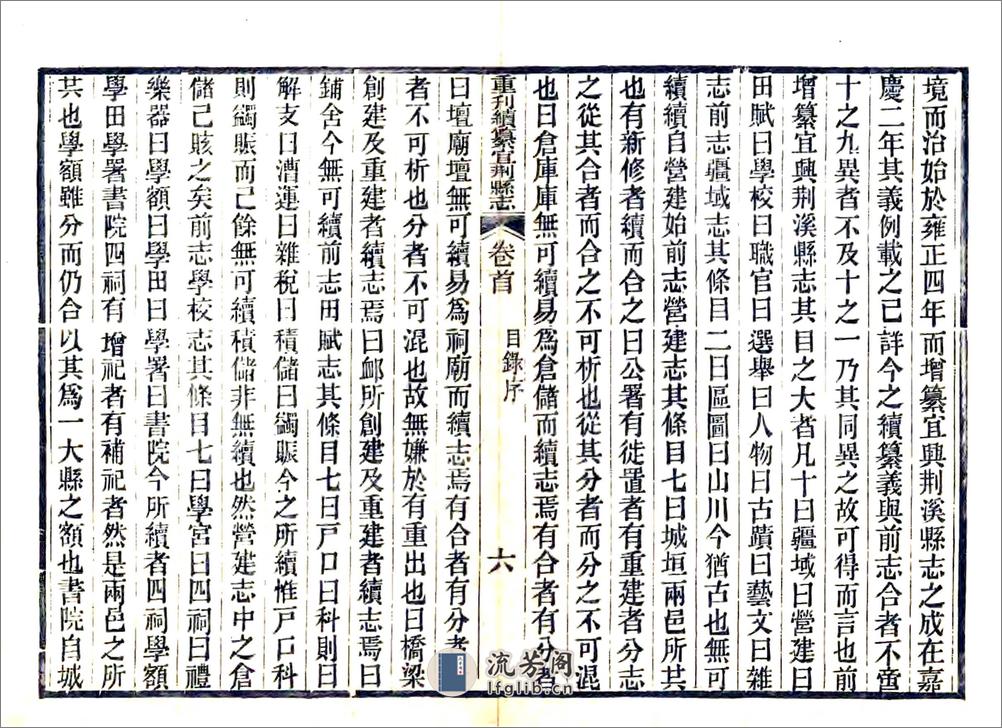 境而治始於雍正四年而增纂宜興荆溪縣志之成在嘉
慶二年其義例載之已詳今之續纂義與前志合者不啻
十之九異者不及十之一乃其同異之故可得而言也前
增纂宜興荆溪縣志其目之大者凡十曰疆域曰營建曰
田賦曰學校曰職官曰選舉曰人物曰古蹟曰藝文曰雜
志前志疆域志其條目二曰區圖曰山川今猶古也無可
續續自營建始前志營建志其條目七曰城垣兩邑所共
也有新修者續而合之曰公署有徙置者有重建者分志
之從其合者而合之不可析也從其分者而分之不可混
也曰倉庫庫無可續易爲倉儲而續志焉有合者有分者
重刊續纂宜荆縣志
卷首
目錄序
六
曰壇廟壇無可續易爲祠廟而續志焉有合者有分者
者不可析也分者不可混也故無嫌於有重出也曰橋梁
創建及重建者續志焉曰邮所創建及重建者續志焉曰
鋪舍今無可續前志田賦志其條目七曰戸口曰科則曰
解支曰漕運曰雜稅曰積儲曰蠲賑今之所續惟戸口科
則蠲賑而已餘無可續積儲非無續也然營建志中之倉
儲已賅之矣前志學校志其條目七曰學宮曰四祠曰禮
樂器曰學額曰學田曰學署曰書院今所續者四祠學額
學田學署書院四祠有增祀者有補祀者然是兩邑之所
共也學額雖分而仍合以其爲一大縣之額也書院自城
流芳閣
lfglib.cn